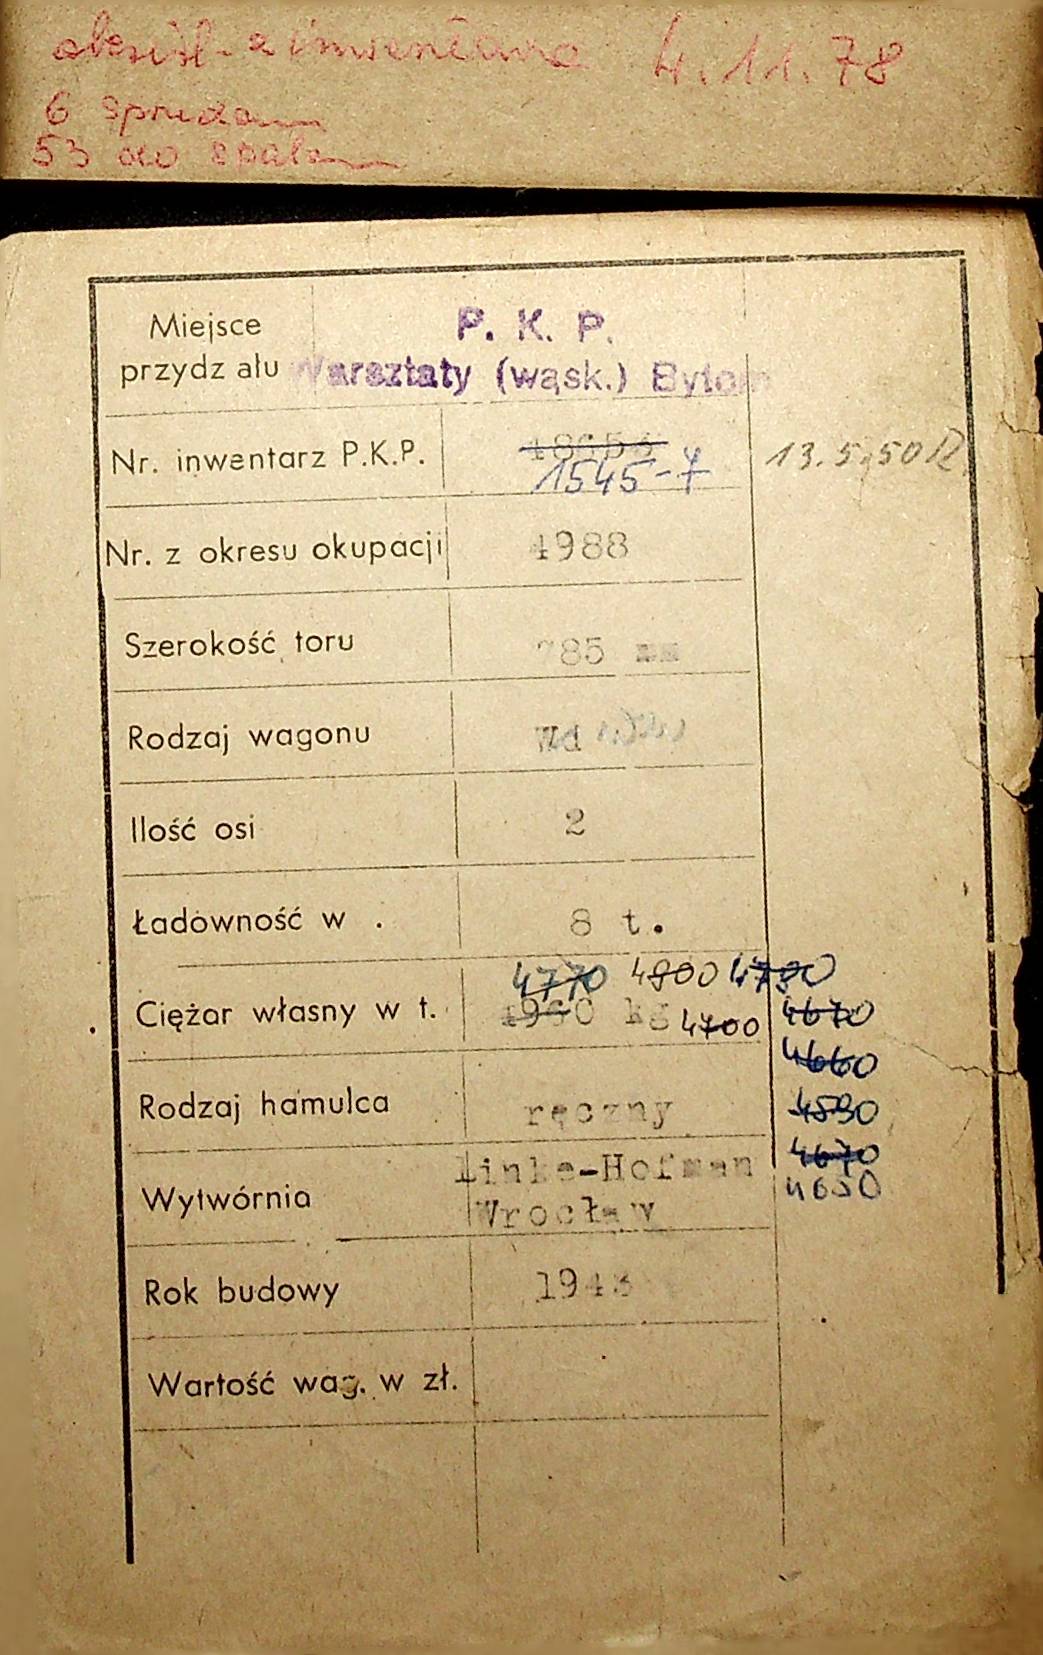 z 4.11.78
6
53 do
Miejsce
przydz ału
P. K. P.
Warsztaty (wąsk.) Bytom
Nr. inwentarz P.K.P.
1545-7
13.5.50 R.
Nr. z okresu okupacji 4988
Szerokość toru 785 mm
Rodzaj wagonu Wd
Ilość osi 2
Ładowność w . 8 t.
4770 4800 4780
Ciężar własny w t. 4960 kg 4700 4670
4660
Rodzaj hamulca ręczny 4590
4670
Linke-Hofman
Wytwórnia Wrocław
Rok budowy 1943
Wartość wag. w zł.